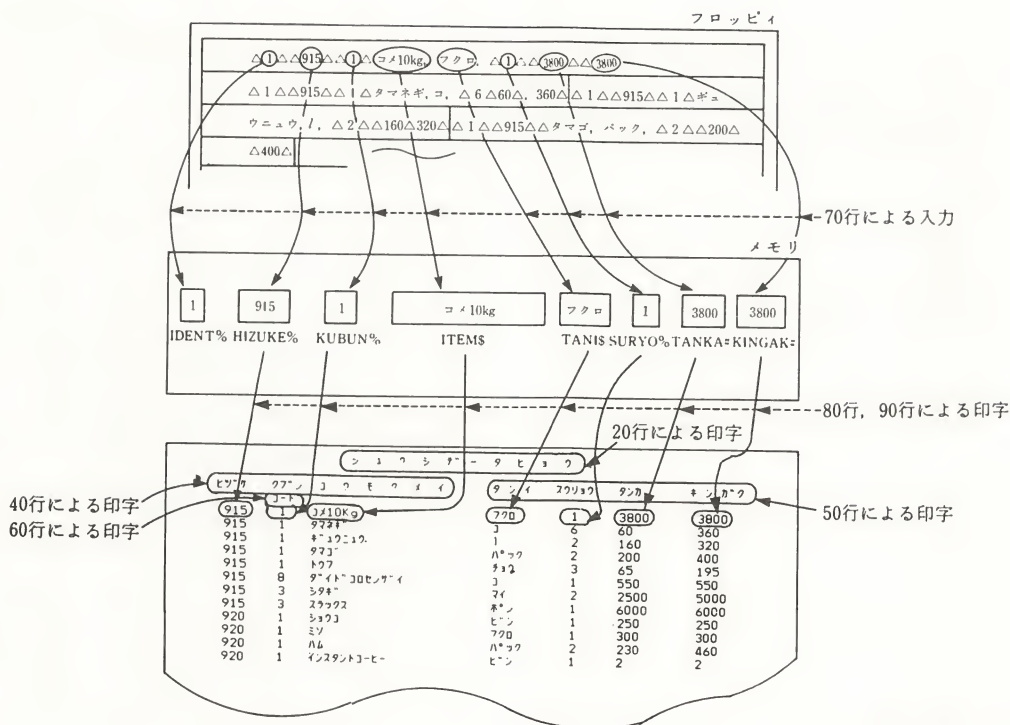 フロッピィ
△1△△915△△1△コメ10kg, フクロ, △1△△3800△△3800
△1△△915△△1△タマネギ, コ, △6△60, 360△△1△△915△△1△ギュ
ウニュウ, l, △2△△160△320△△1△△915△△タマゴ, パック, △2△△200△
△400△
70行による入力
メモリ
1 915 1 コメ10kg フクロ 1 3800 3800
IDENT% HIZUKE% KUBUN% ITEM$ TANI$ SURYO% TANKA= KINGAK=
80行, 90行による印字
20行による印字
シュウシデータヒョウ
40行による印字
ヒヅケ クブン コウモクメイ タンイ スウリョウ タンカ キンガク
50行による印字
60行による印字
コード
915 1 コメ10Kg フクロ 1 3800 3800
915 1 タマネギ コ 6 60 360
915 1 ギュウニュウ. l 2 160 320
915 1 タマゴ パック 2 200 400
915 1 トウフ チョウ 3 65 195
915 8 ダイドコロセンザイ コ 1 550 550
915 3 シタギ マイ 2 2500 5000
915 3 スラックス ホン 1 6000 6000
920 1 ショウユ ビン 1 250 250
920 1 ミソ フクロ 1 300 300
920 1 ハム パック 2 230 460
920 1 インスタントコーヒー ビン 1 2 2